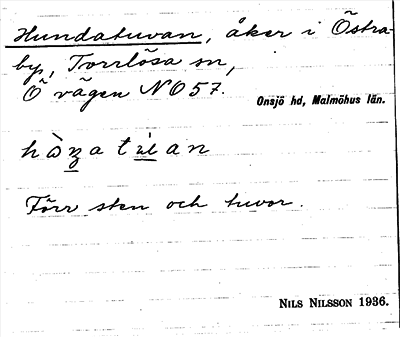 Hundatuvan, åker i Östra-
by, Torrlösa sn,
Ö vägen NO57.
Onsjö hd, Malmöhus län.
Förr sten och tuvor.
NILS NILSSON 1936.